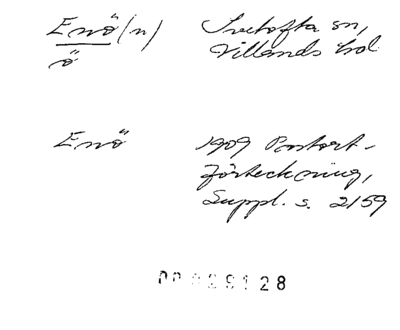 Enö (n) Ivetofta sn,
ö Villands hd
Enö 1909 Postort-
förteckning,
Suppl. s. 2159
29128